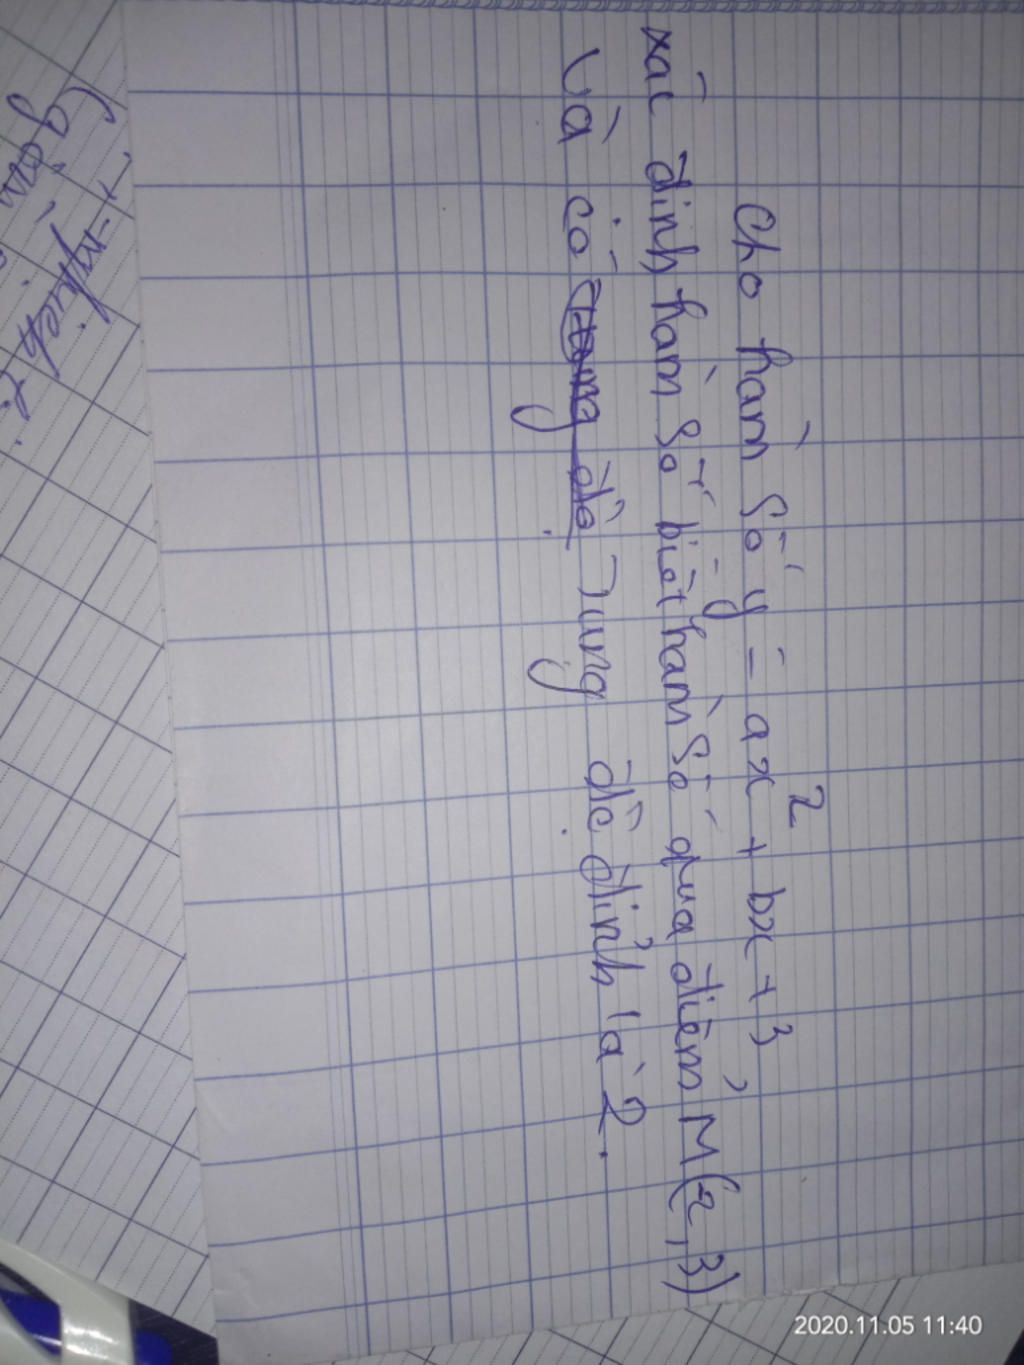 Cho hàm số y = ax² + bx + 3
xác định hàm số biết hàm số qua điểm M(-2,3)
Và có tung độ đỉnh là 2.
2020.11.05 11:40